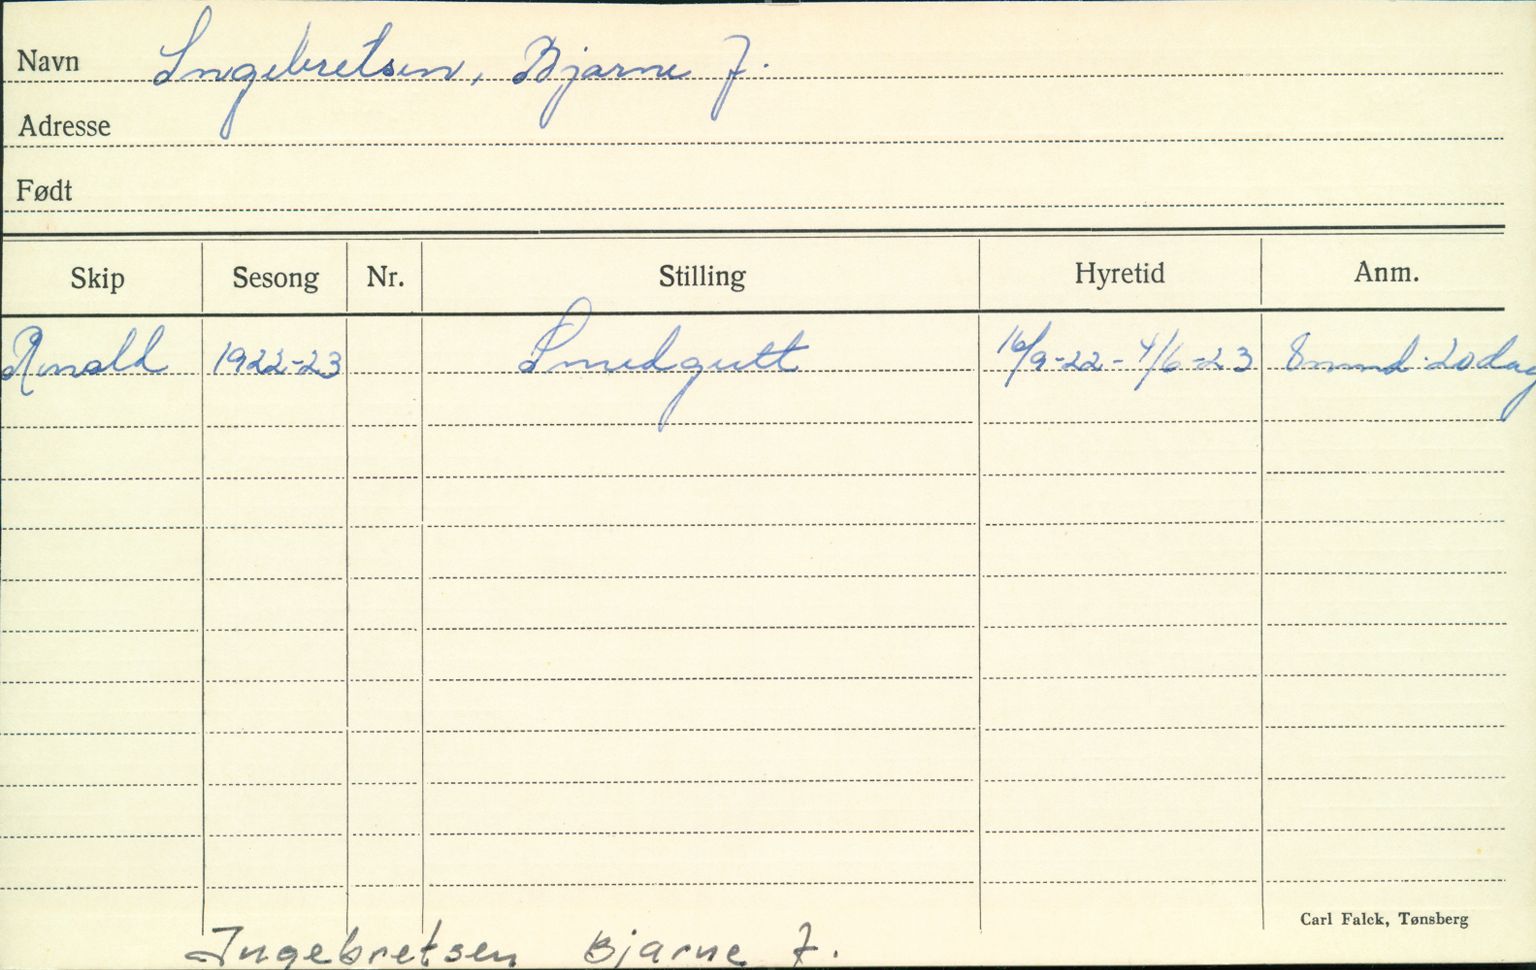 Navn Ingebretsen, Bjarne J.
Adresse
Født
Skip Sesong Nr. Stilling Hyretid Anm.
Ronald 1922-23 Smedgutt 16/9-22 - 4/6-23 8 mnd. 20 dag
Carl Falck, Tønsberg
Ingebretsen Bjarne J.